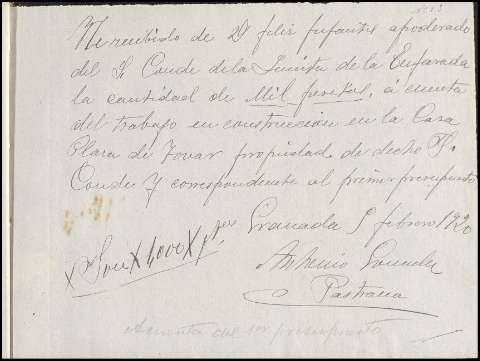 He recibido de D felix Infantes apoderado
del Sr Conde de la Quinta de la Enjarada
la cantidad de Mil pesetas, á cuenta
del trabajo en construccion en la Casa
Plaza de Tovar propiedad de dicho Sr.
Conde y correspondiente al primer presupuesto
Granada 5 febrero 1920
Son 1000 ptas
Antonio
Pastrana
A cuenta del 1er presupuesto